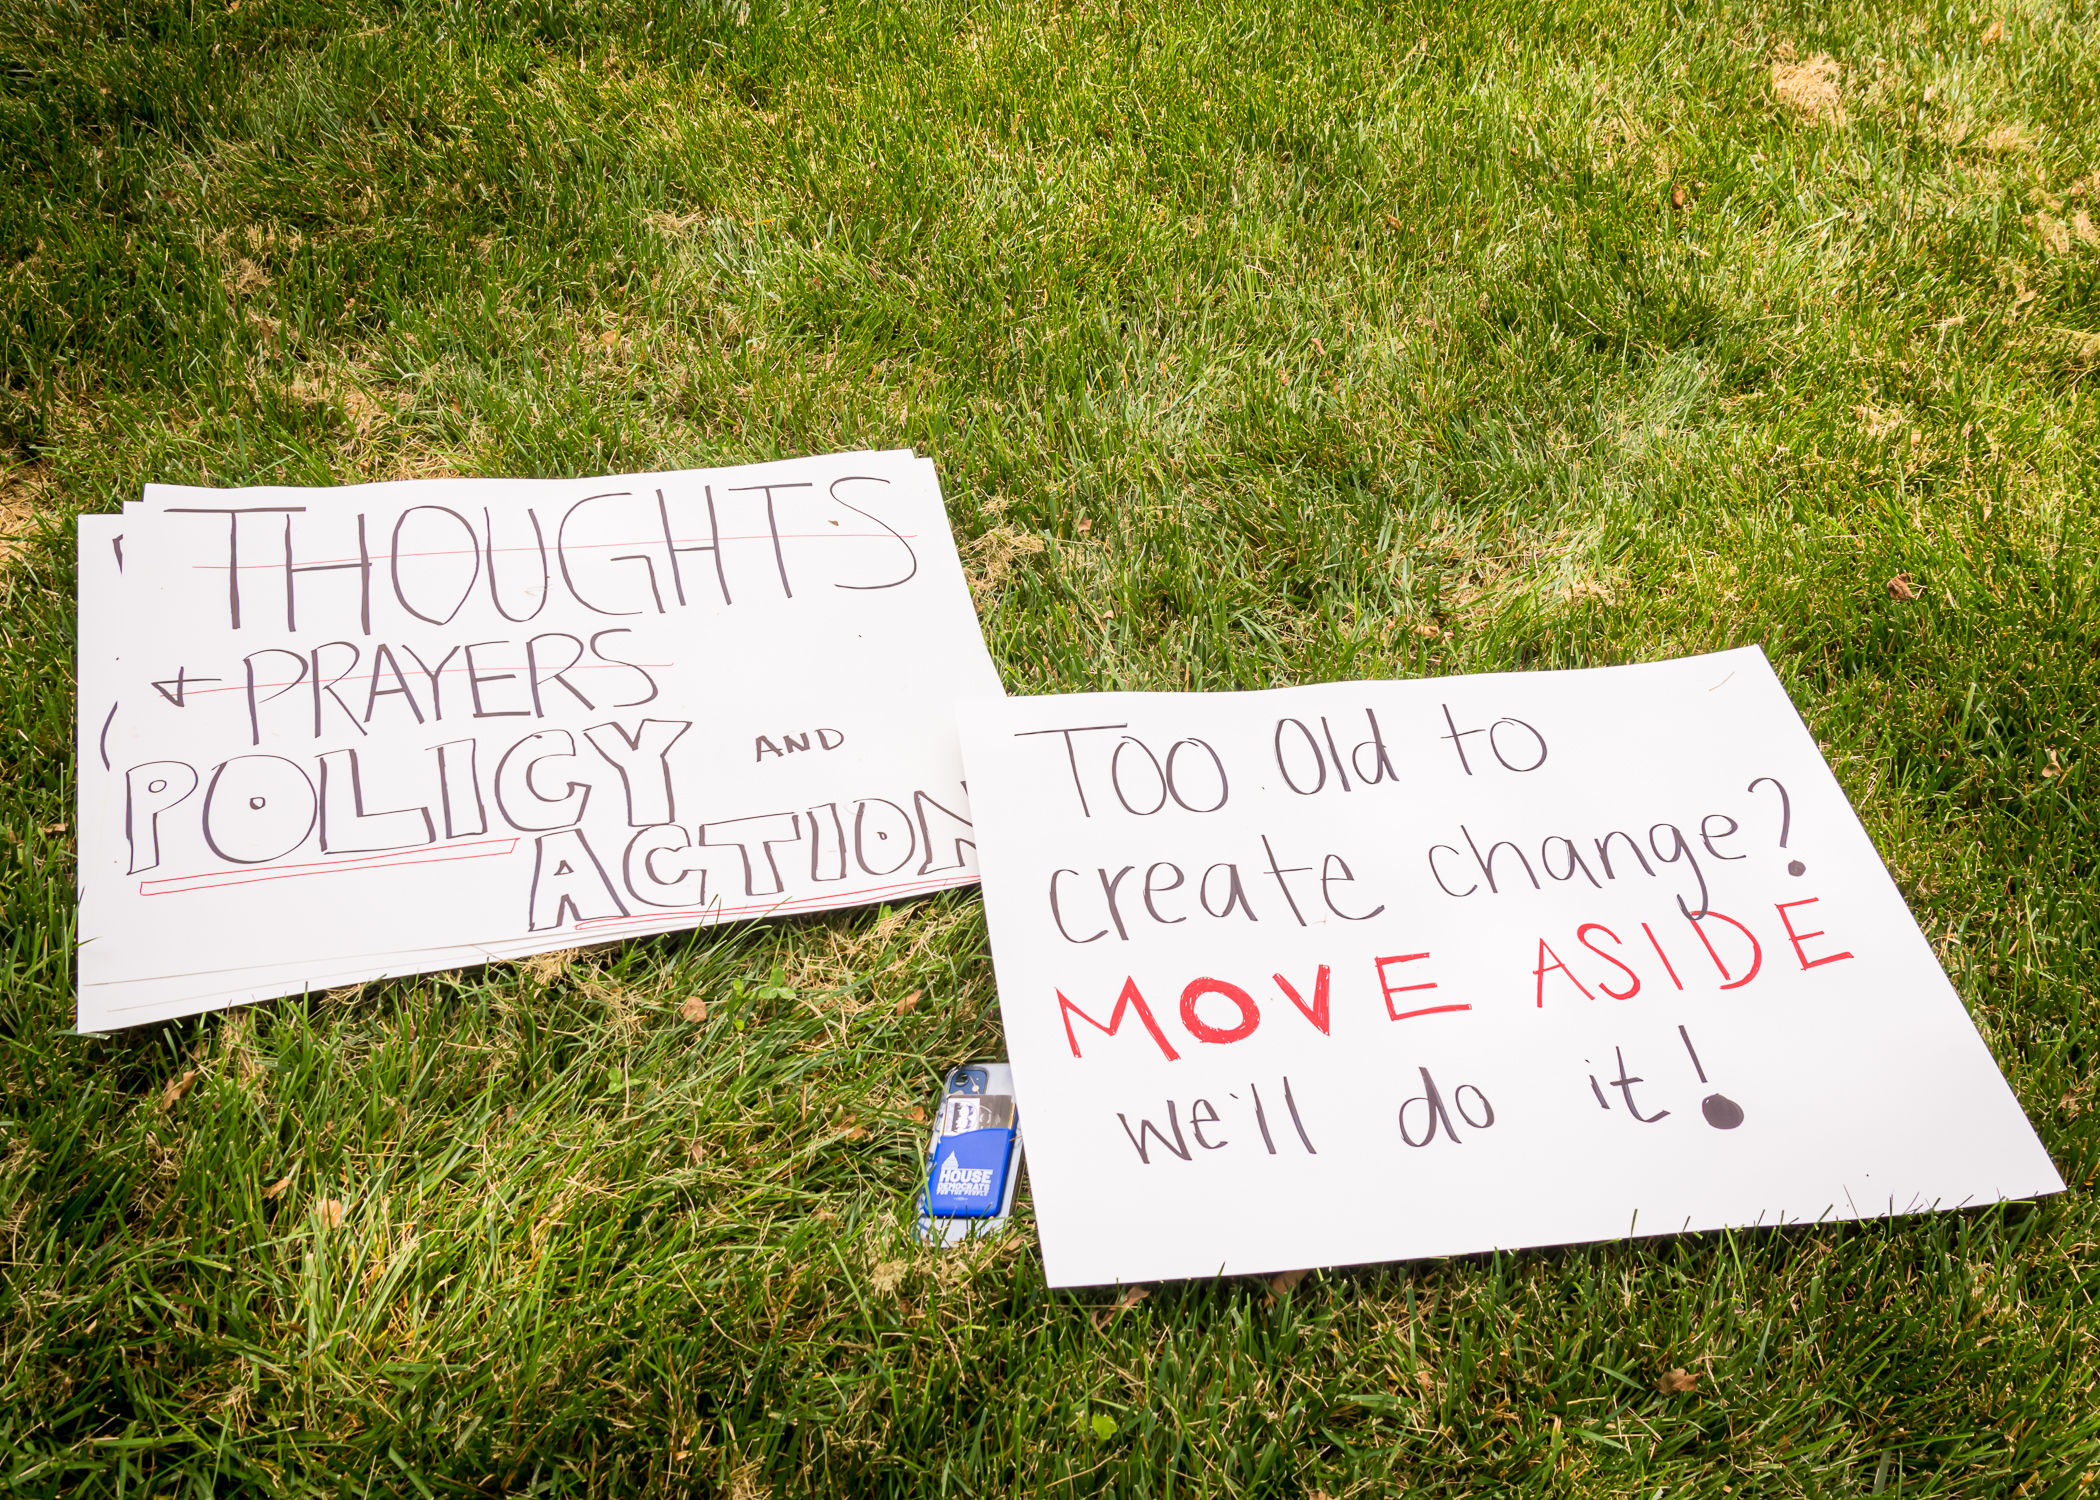 THOUGHTS
+ PRAYERS
POLICY AND
ACTION
Too Old to
create change?
MOVE ASIDE
we'll do it!
HOUSE
DEMOCRATS
FOR THE PEOPLE